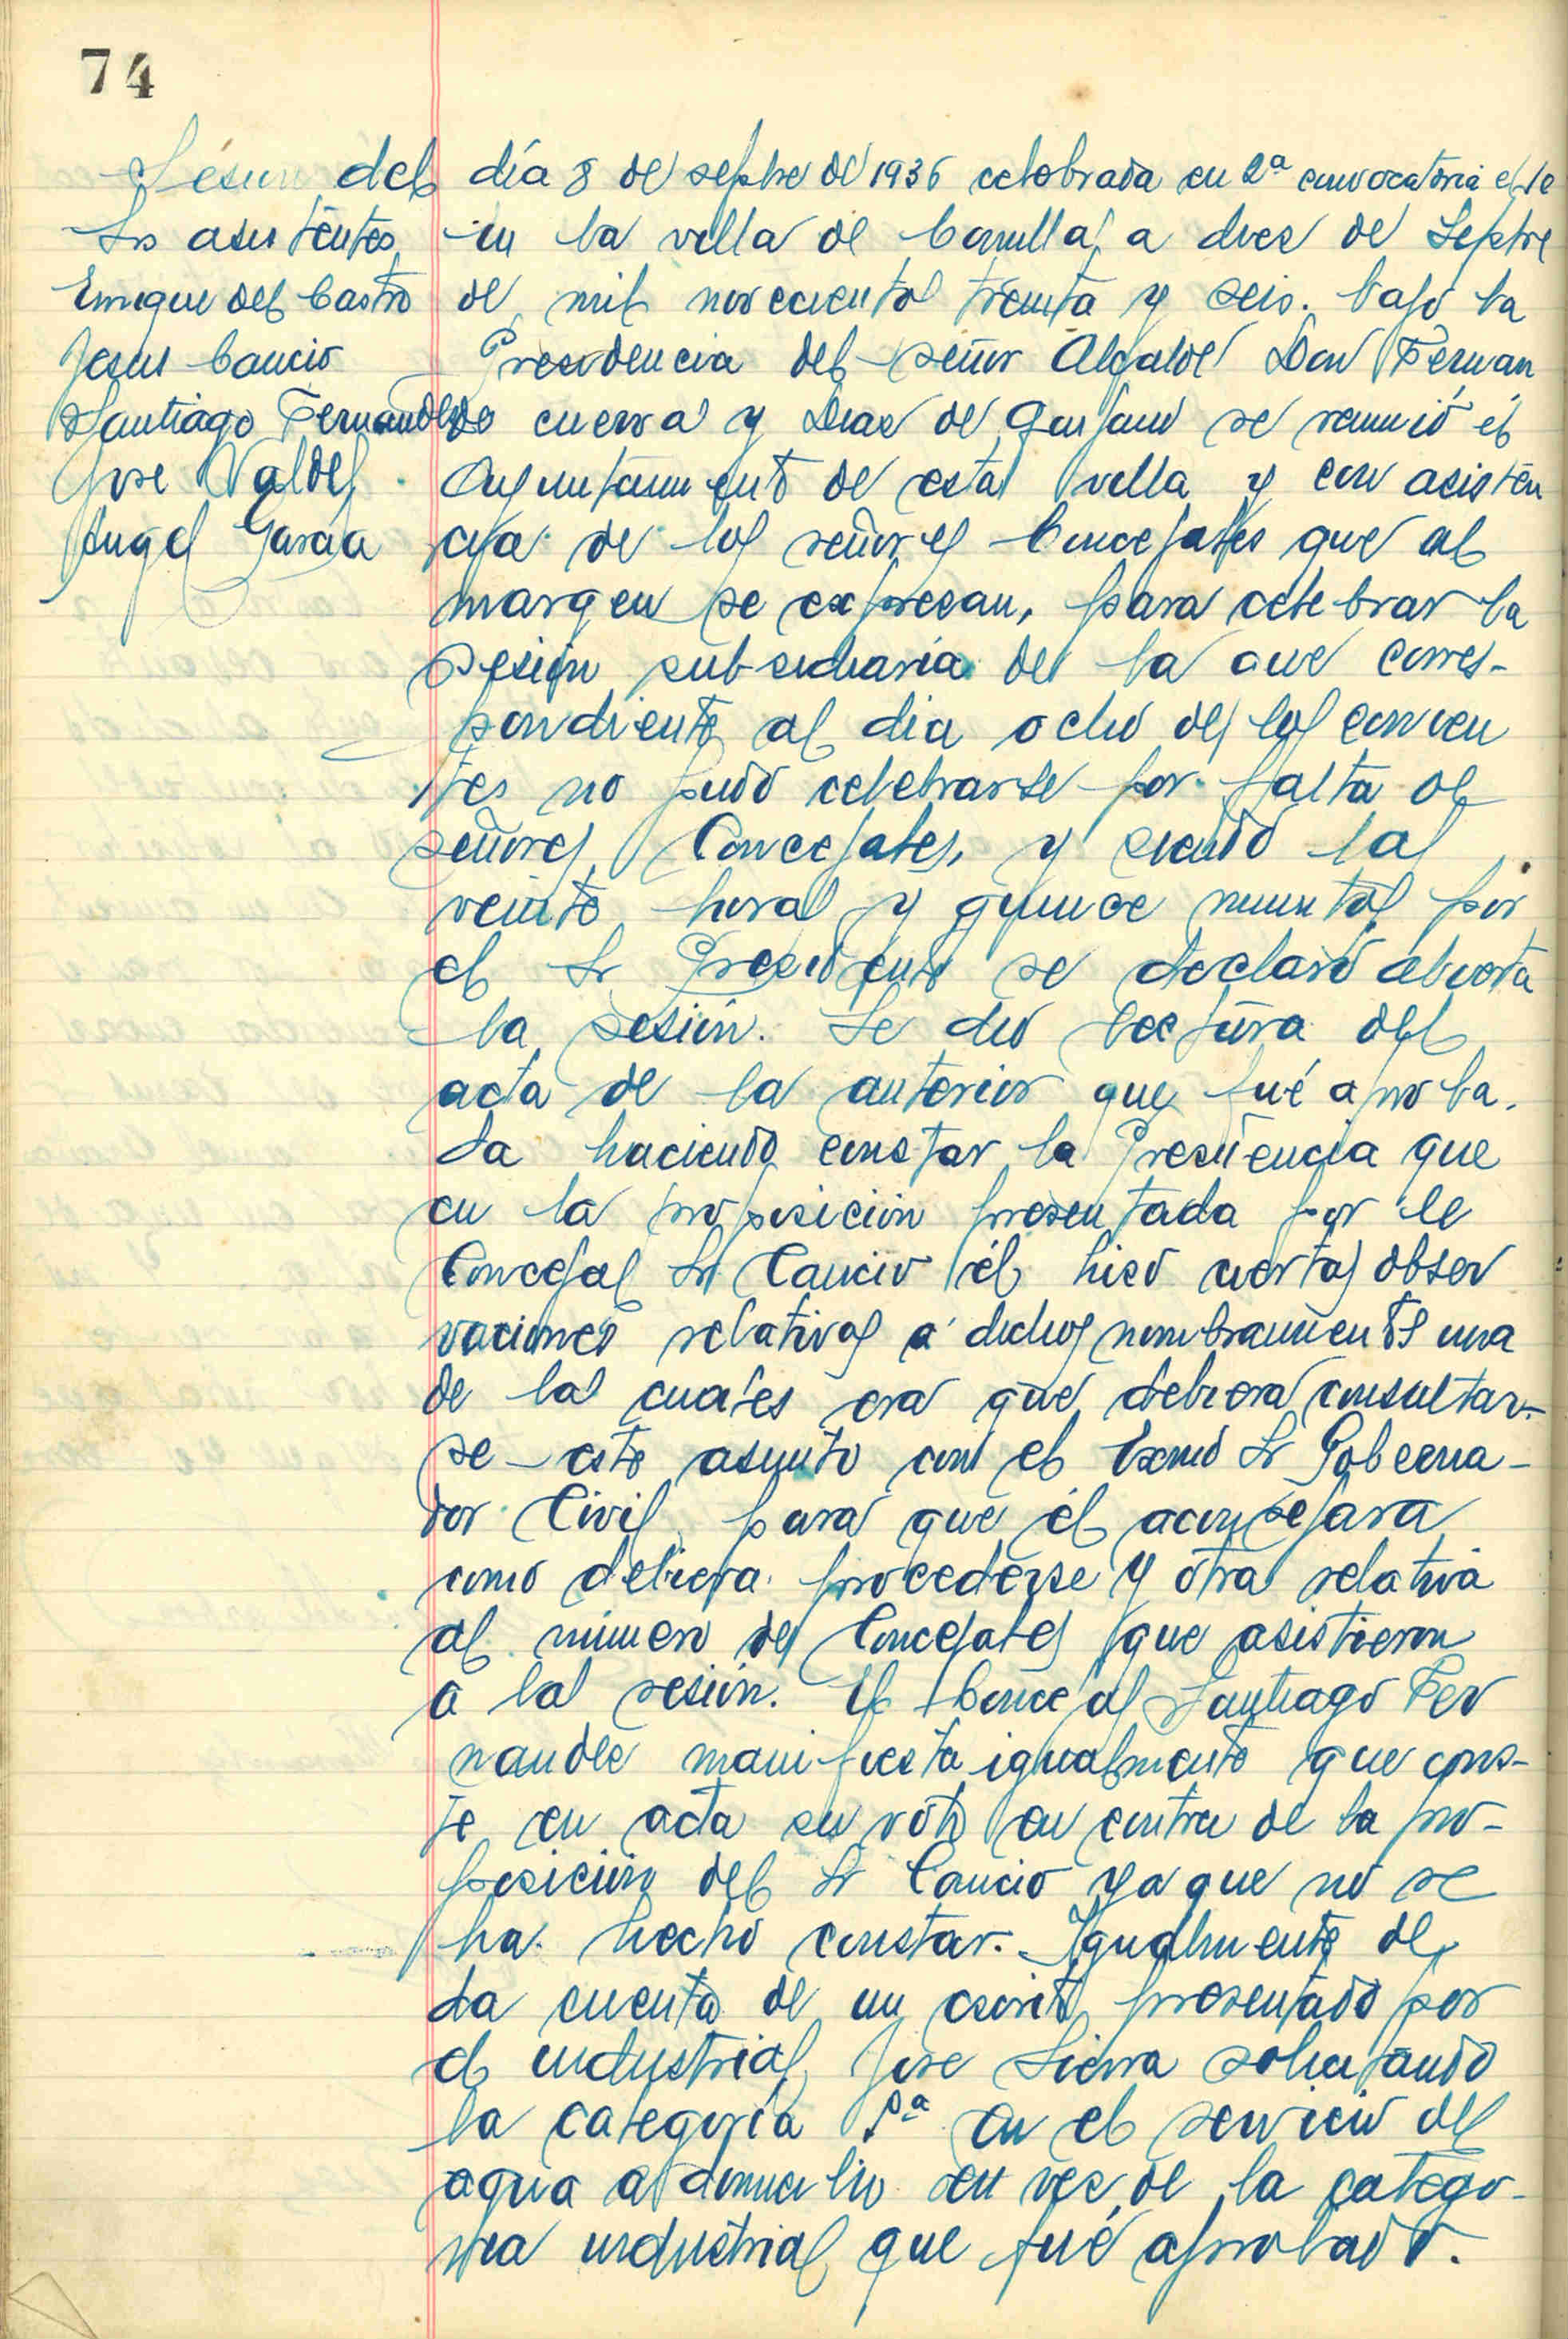 74
Sesion del día 8 de sepbre de 1936 celebrada en 2ª convocatoria el 10
Srs asistentes
Enrique del Castro
Jesus Cancio
Santiago Fernandez
Jose Valdes
Angel Garcia
en la villa de Comillas, a diez de Septbre
de mil novecientos treinta y seis. bajo la
Presidencia del señor Alcalde Don Fernan
do cueva y Diaz de se reunió el
Ayuntamiento de esta villa y con asisten
cia de los señores Concejales que al
margen se expresan, para celebrar la
sesion subsidiaria de la que corres-
pondiente al dia ocho de los corrien
tes no pudo celebrarse por falta de
señores Concejales, y siendo las
veinte horas y quince minutos por
el Sr Presidente se declaró abierta
la sesión. Se dio lectura del
acta de la anterior que fué aproba-
da haciendo constar la Presidencia que
en la proposición presentada por le
Concejal Sr Cancio él hizo ciertas obser
vaciones relativas a dichos nombramientos una
de las cuales era que debiera consultar-
se este asunto con el Excmo Sr Goberna-
dor Civil para que él aconsejara
como debiera procederse y otra relativa
al número de Concejales que asistieron
a la sesión. El Concejal Santiago Fer
nandez manifiesta igualmente que cons-
te en acta su voto en contra de la pro-
posicion del Sr Cancio ya que no se
ha hecho constar. Igualmente de
da cuenta de un escrito presentado por
el industrial Jose Sierra solicitando
la categoria 1ª en el servicio del
agua a domicilio en vez de la catego-
ria industrial que fué aprobado.